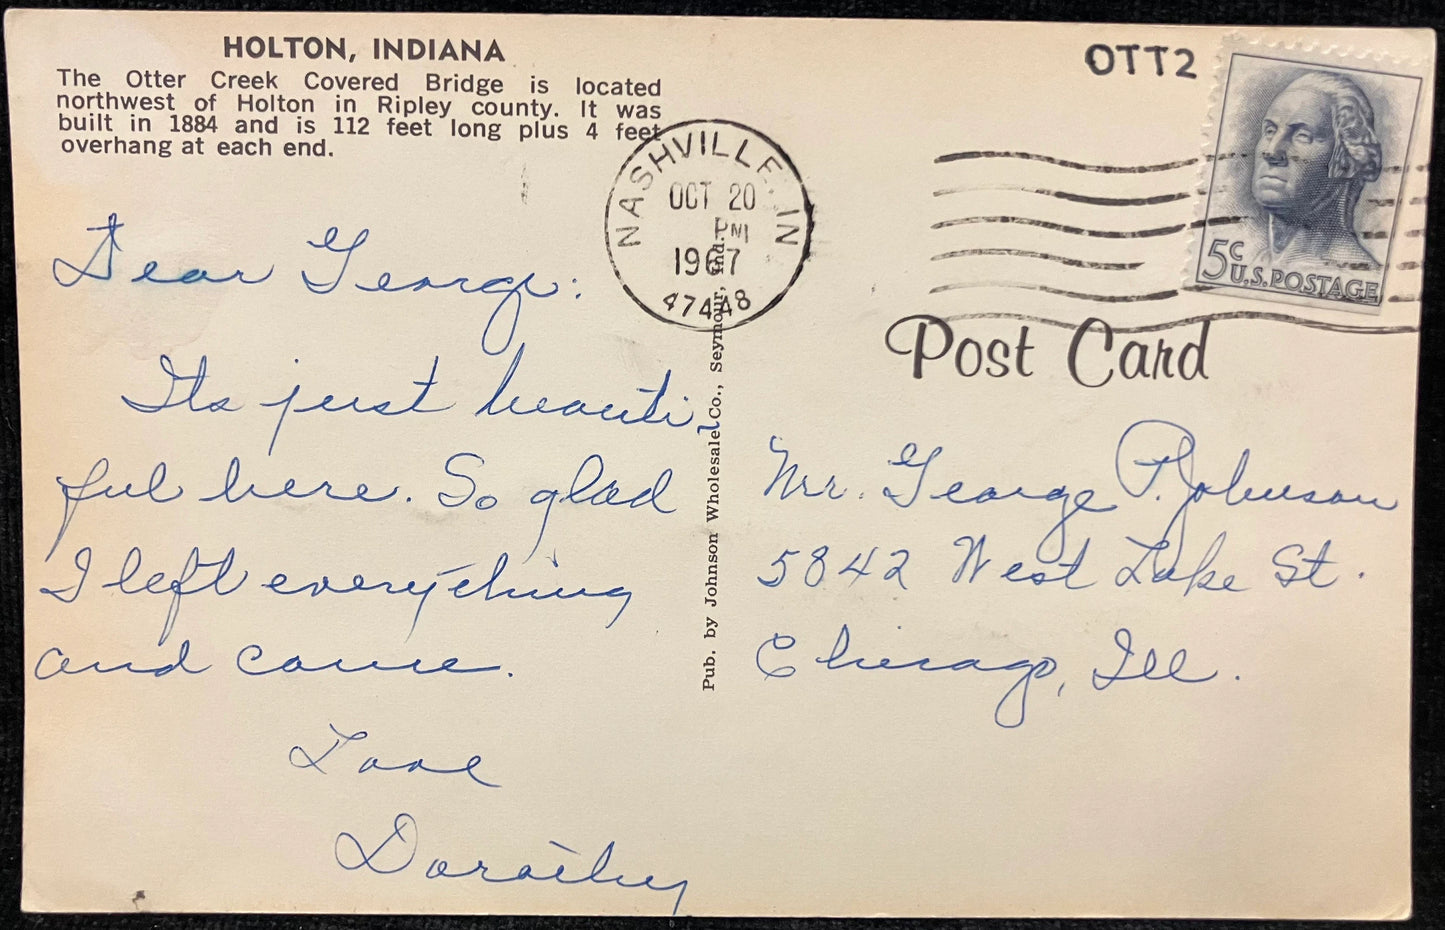 HOLTON, INDIANA
The Otter Creek Covered Bridge is located
northwest of Holton in Ripley county. It was
built in 1884 and is 112 feet long plus 4 feet
overhang at each end.
Dear George:
Its just beauti
ful here. So glad
I left everything
and came.
Love
Dorothy
Pub. by Johnson Wholesale Co., Seymour, Ind.
NASHVILLE, IN
OCT 20
PM
1967
47448
OTT2
5c
U.S. POSTAGE
Post Card
Mr. George P. Johnson
5842 West Lake St.
Chicago, Ill.